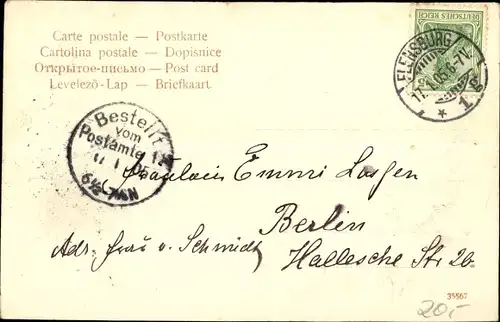 Carte postale — Postkarte
Cartolina postale — Dopisnice
Открытое письмо — Post card
Levelezõ-Lap — Briefkaart
DEUTSCHES REICH
FLENSBURG
17.1.05. 6-7N.
* 1g
Bestellt
vom
Postamte
17. 1. 05
6½-7½N
Fräulein Emmi Lassen
Berlin
Adr. Frau v. Schmidt
Hallesche Str 26
35567
20,-